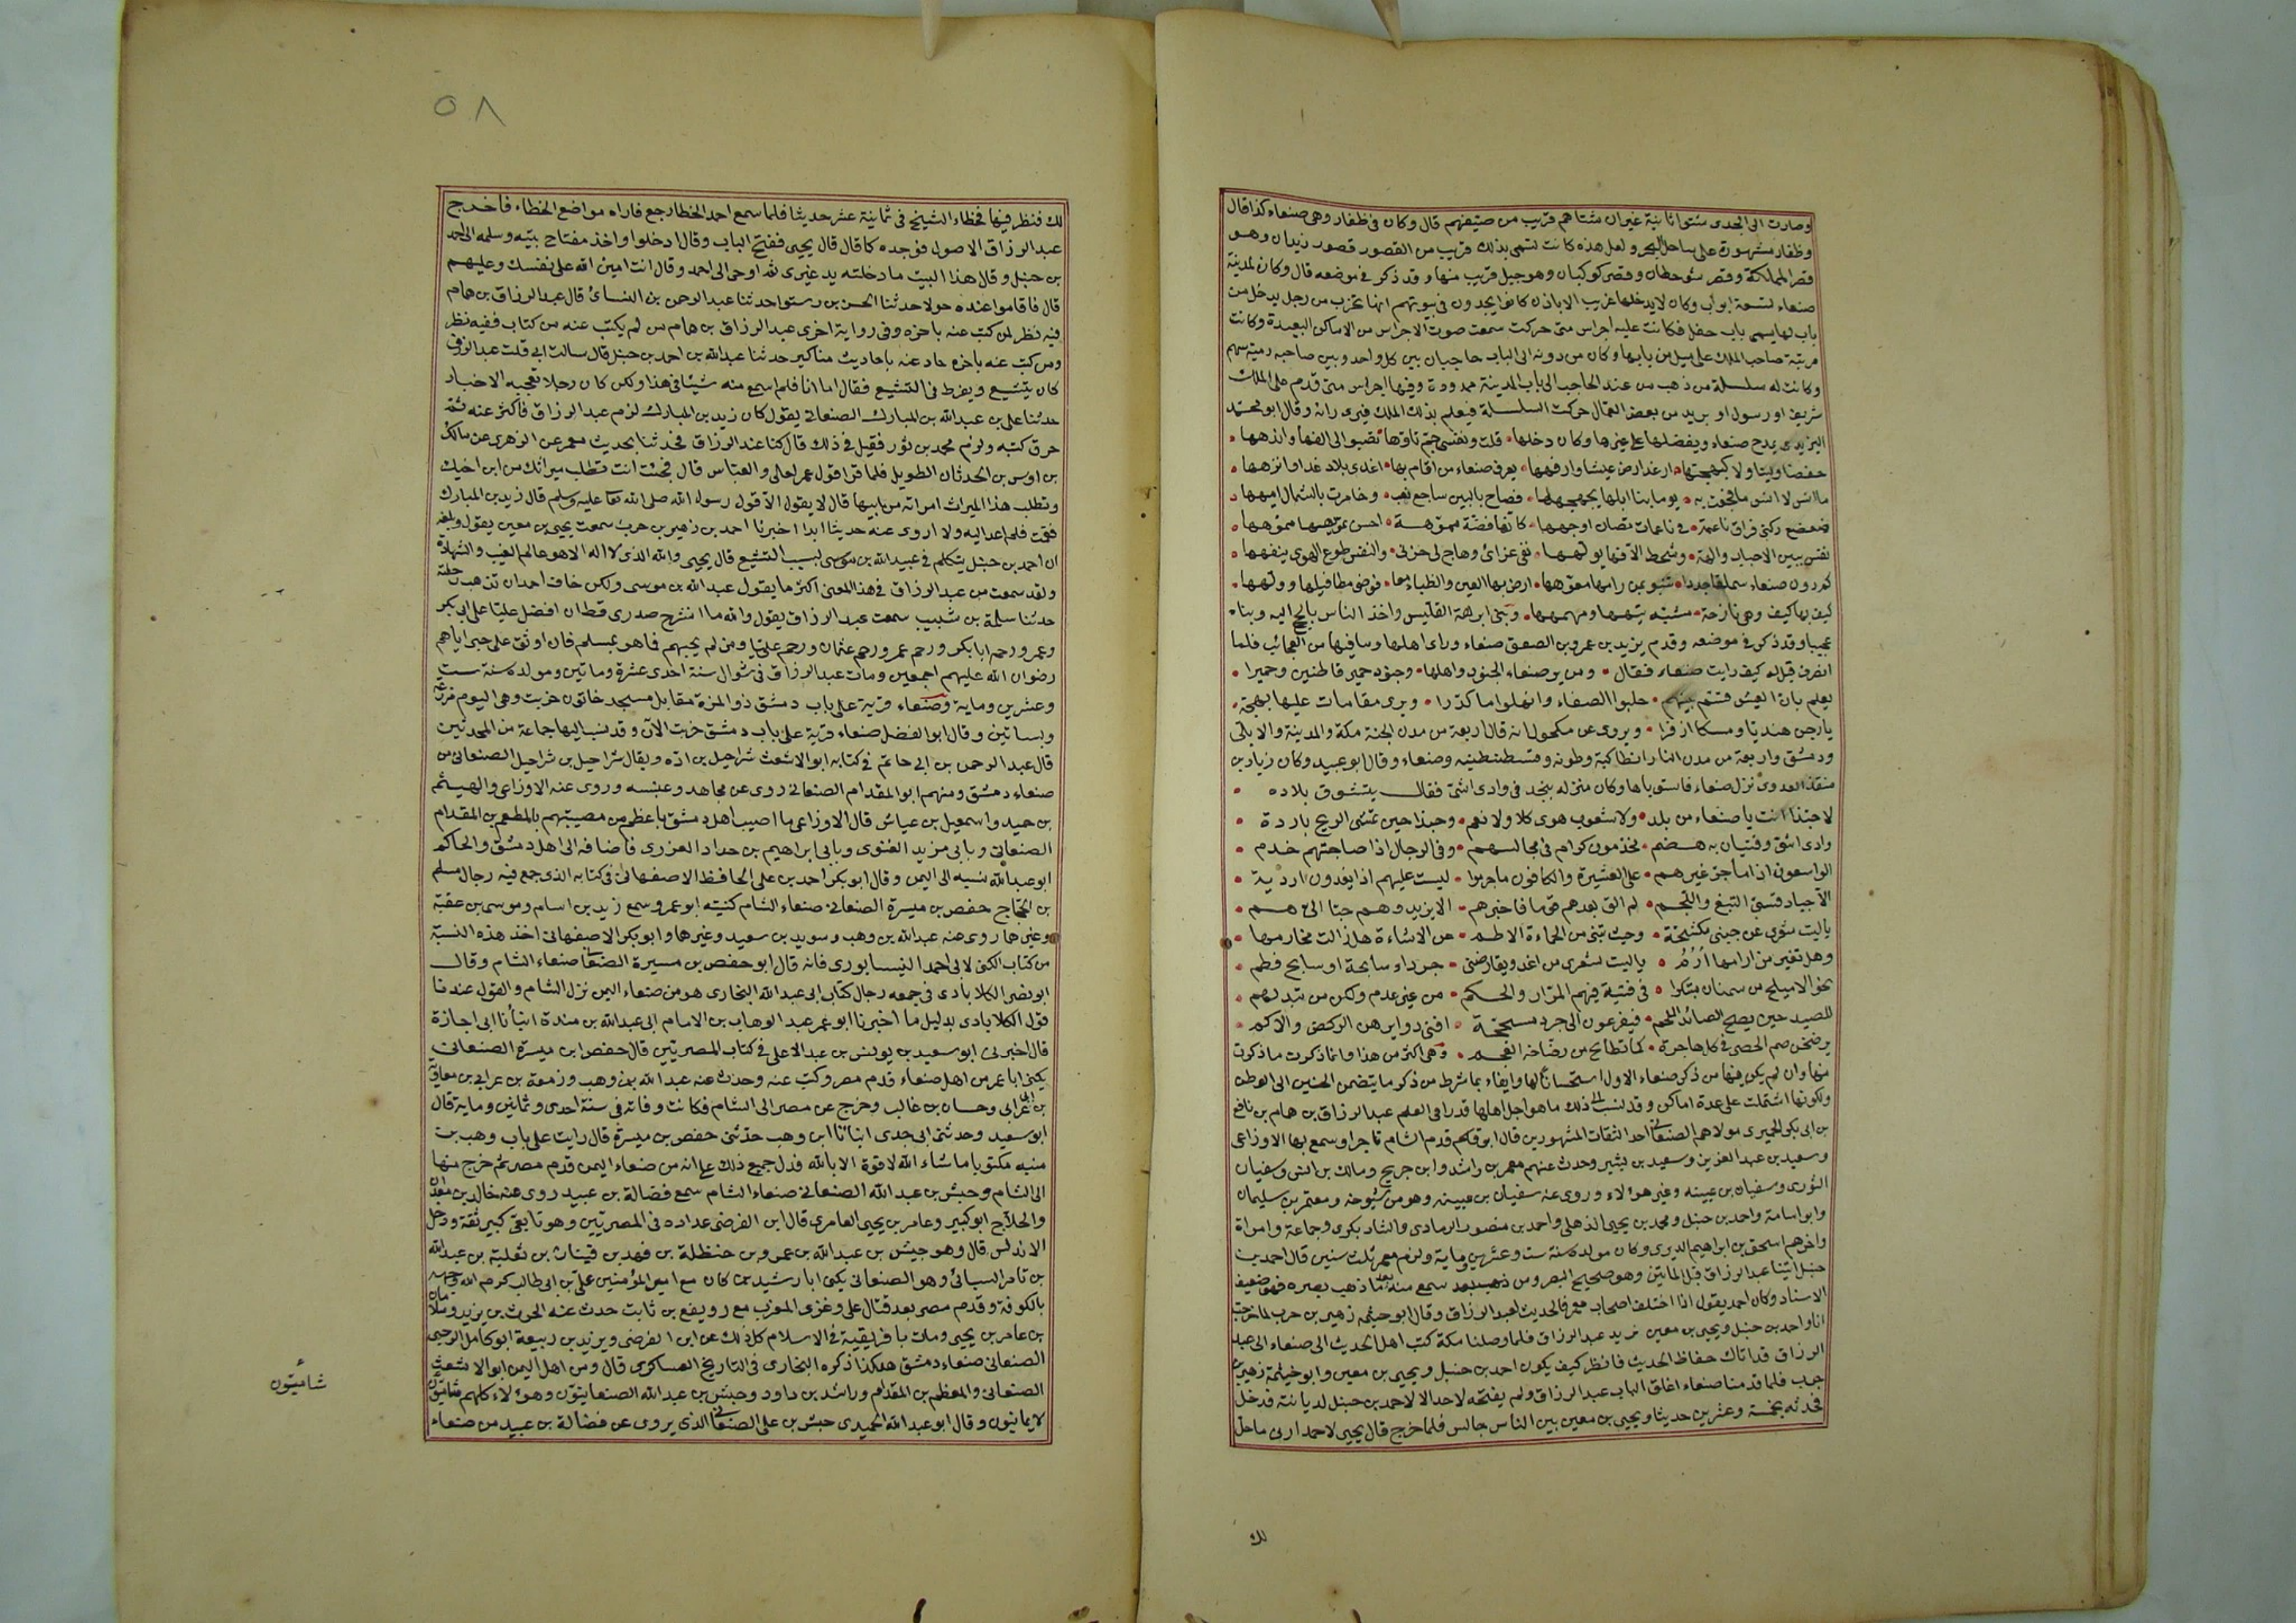 وصارت الى الجدى شتوا ثانية غير ان مشتاهم قريب من صيفهم قال وكان فى ظفار وهى صنعاء كذا قال
وظفار مشهورة على ساحل البحر ولعل هذه كانت تسمى بذلك قريب من القصور قصور زيدان وهو
قصر المملكة وقصر شوحطان وقصر كوكبان وهو جبل قريب منها وقد ذكر فى موضعه قال وكان لمدينة
صنعاء تسعة ابواب وكان لا يدخلها غريب الا باذن كانوا يجدون فى بيوتهم انها تخرب من رجل يدخل من
باب لها يسمى باب حقل فكانت عليه اجراس متى حركت سمعت صوت الاجراس من الاماكن البعيدة وكانت
مرتبة صاحب الملك على ميل من بابها وكان من دونه الى الباب حاجبان بين كل واحد وبين صاحبه رمية سهم
وكانت له سلسلة من ذهب من عند الحاجب الى باب المدينة ممدودة وفيها اجراس متى قدم على الملك
شريف او رسول او بريد من بعض العمال حركت السلسلة فيعلم بذلك الملك فيرى رائه وقال ابو محمد
اليزيدى يمدح صنعاء ويفضلها على غيرها وكان دخلها • قلت ونفسى جم تاوهها • تصبو الى الفها واندهها •
ارغد ارض عيشا وارفهها • يعرف صنعاء من اقام بها • اغذى بلاد غدا وانزهها •
ما انس لا انس ما فجعت به • يوما بنا ابلها يجهجهها • فصاح بالبين ساجع لغب • وخامرت بالشمال امهها •
ضعضع ركنى فراق ناعمة • فى ناعمات تصان اوجهها • كانها فضة مموهة • احسن تمويهها مموهها •
نفس بين الاحباب والهة • وشحط الافها يولهها • نفى عزائ وهاج لى حزنى • والنفس طوع الهوى ينفهها •
كم دون صنعاء سملقا جددا • تنبو بمن رامها معوهها • ارض بها العين والظباء معا • فوضى مطافيلها وولهها •
كيف بها كيف وهى نازحة • مشبه تيهها ومهمهها • وبنى ابرهة القليس واخذ الناس بالحج اليه وبناه
عجيبا وقد ذكر فى موضعه وقدم يزيد بن عمرو بن الصعق صنعاء وراى اهلها وما فيها من العجائب فلما
انصرف قيل له كيف رايت صنعاء فقال • ومن ير صنعاء الجنود واهلها • وجنود حمير قاطنين وحميرا •
يعلم بان العيش قسم بينهم • حلبوا الصفاء وانهلوا ما كدرا • ويرى مقامات عليها بهجة •
يارجن هنديا ومسكا اذفرا • ويروى عن مكحول انه قال اربعة من مدن الجنة مكة والمدينة وايليا
ودمشق واربعة من مدن النار انطاكية وطوانه وقسطنطينيه وصنعاء وقال ابو عبيد وكان زياد بن
منقذ العدوى نزل صنعاء فاستوباها وكان منزله بنجد فى وادى اشى فقال يتشوق بلاده •
لا حبذا انت يا صنعاء من بلد • ولا شعوب هوى كلا ولا نقم • وحبذا حين تمسى الريح باردة •
وادى اشى وفتيان به هضم • مخدمون كرام فى مجالسهم • وفى الرجال اذا صاحبتهم خدم •
الواسعون اذا ما جر غيرهم • على العشيرة والكافون ما جرموا • ليست عليهم اذا يغدون اردية •
الا جياد قسى النبع واللجم • لم الق بعدهم قوما فاخبرهم • الا يزيدوهم حبا الى هم •
يا ليت شعرى عن جنبى مكشحة • وحيث تبنى من الحناءة الاطم • عن الاشاءة هل زالت مخارمها •
وهل تغير من ارامها ارم • يا ليت شعرى من اغدو يقارضنى • جرداء سابحة او سابح قطم •
نحو الاميلح من سمنان مبتكرا • فى فتية فيهم المرار والحكم • من غير عدم ولكن من تبذلهم •
للصيد حين يصيح الصائد اللحم • فيفزعون الى جرد مسحجة • افنى دوابرهن الركض والاكم •
يرضخن صم الحصى فى كل هاجرة • كما تطايح من رضاخه العجم • وهى اكثر من هذا وانما ذكرت ما ذكرت
منها وان لم يكن فيها من ذكر صنعاء الا الاول استحسانا لها وايفاء بما شرط من ذكر ما يتضمن الحنين الى الوطن
ولكونها اشتملت على عدة اماكن وقد نسب الى ذلك ما هو اجل اهلها قدرا فى العلم عبد الرزاق بن همام بن نافع
بن ابى بكر الحميرى مولاهم الصنعانى احد الثقات المشهورين قال ابو القسم قدم الشام تاجرا وسمع بها الاوزاعى
وسعيد بن عبد العزيز وسعيد بن بشير وحدث عنهم معمر بن راشد وابن جريج ومالك بن انس وسفيان
الثورى وسفيان بن عيينه وغير هؤلاء وروى عنه سفيان بن عيينه وهو من شيوخه ومعتمر بن سليمان
وابو اسامة واحمد بن حنبل ومحمد بن يحيى الذهلى واحمد بن منصور الرمادى والشاد بكوى وجماعة وامراة
واخرهم اسحق بن ابراهيم الدبرى وكان مولده سنة ست وعشرين وماية ولزم معمر ثلث سنين قال احمد بن
حنبل اتينا عبد الرزاق قبل المايتين وهو صحيح البصر ومن سمع منه بعد ما ذهب بصره فهو ضعيف
الاسناد وكان احمد يقول اذا اختلف اصحاب معمر فالحديث لعبد الرزاق وقال ابو خيثمه زهير بن حرب لما خرجت
انا واحمد بن حنبل ويحيى بن معين نريد عبد الرزاق فلما وصلنا مكة كتب اهل الحديث الى صنعاء الى عبد
الرزاق قد اتاك حفاظ الحديث فانظر كيف يكون احمد بن حنبل ويحيى بن معين وابو خيثمة زهير بن
حرب فلما قدمنا صنعاء اغلق الباب عبد الرزاق ولم يفتحه لاحد الا لاحمد بن حنبل لديانته فدخل
فحدثه بخمسة وعشرين حديثا ويحيى بن معين بين الناس جالس فلما خرج قال يحيى لاحمد ارنى ما حل
لك
٥٨
لك فنظر فيها فخطاء الشيخ فى ثمانية عشر حديثا فلما سمع احمد الخطا رجع فاراه مواضع الخطاء فاخرج
عبد الرزاق الاصول فوجده كما قال قال يحيى ففتح الباب وقال ادخلوا واخذ مفتاح بيته وسلمه الى احمد
بن حنبل وقال هذا البيت ما دخلته يد غيرى ثم اوحى الى احمد وقال انت امين الله على نفسك وعليهم
قال فاقاموا عنده حولا حدثنا الحسن بن رستوا حدثنا عبد الرحمن بن النسائ قال عبد الرزاق بن همام
فيه نظر لمن كتب عنه باخره وفى رواية اخرى عبد الرزاق بن همام من لم يكتب عنه من كتاب ففيه نظر
ومن كتب عنه باخره حاد عنه باحاديث مناكير حدثنا عبد الله بن احمد بن حنبل قال سالت ابى قلت عبد الرزاق
كان يتشيع ويفرط فى التشيع فقال اما انا فلم اسمع منه شيئا فى هذا ولكن كان رجلا تعجبه الاخبار
حدثنا على بن عبد الله بن المبارك الصنعانى يقول كان زيد بن المبارك لزم عبد الرزاق فاكثر عنه ثم
حرق كتبه ولزم محمد بن ثور فقيل فى ذلك قال كنا عند الرزاق فحدثنا بحديث معمر عن الزهرى عن مالك
بن اوس بن الحدثان الطويل فلما قرا قول عمر لعلى والعباس قال فجئت انت تطلب ميراثك من ابن اخيك
وتطلب هذا الميراث امراته من ابيها قال لا يقول الا قول رسول الله صلى الله تعا عليه وسلم قال زيد بن المبارك
فقمت فلم اعد اليه ولا اروى عنه حديثا ابدا اخبرنا احمد بن زهير بن حرب سمعت يحيى بن معين يقول وبلغه
ان احمد بن حنبل يتكلم فى عبيد الله بن موسى بسبب التشيع قال يحيى والله الذى لا اله الا هو عالم الغيب والشهادة
ولقد سمعت من عبد الرزاق فى هذا المعنى اكثر ما يقول عبد الله بن موسى ولكن خاف احمد ان تذهب رحلته
حدثنا سلمة بن شبيب سمعت عبد الرزاق يقول والله ما انشرح صدرى قط ان افضل عليا على ابى بكر
وعمر ورحم ابا بكر ورحم عمر ورحم عثمان ورحم عليا ومن لم يحبهم فما هو بمسلم فان اوثق على حبى اياهم
رضوان الله عليهم اجمعين ومات عبد الرزاق فى شوال سنة احدى عشرة ومايتين ومولده سنة ست
وعشرين وماية وصنعاء قرية على باب دمشق ذو المزة مقابل مسجد خاتون خربت وهى اليوم مزرعة
وبساتين وقال ابو الفضل صنعاء قرية على باب دمشق خربت الآن وقد نسب اليها جماعة من المحدثين
قال عبد الرحمن بن ابى حاتم فى كتابه ابو الاشعث شراحيل بن ادّه ويقال شراحيل بن شراحيل الصنعانى من
صنعاء دمشق ومنهم ابو المقدام الصنعانى روى عن مجاهد وعنبسه وروى عنه الاوزاعى والهيثم
بن حميد واسمعيل بن عياش قال الاوزاعى ما اصيب اهل دمشق باعظم من مصيبتهم بالمطعم بن المقدام
الصنعانى وبابى مزيد الغنوى وبابى ابراهيم بن حداد العزرى فاضافه الى اهل دمشق والحاكم
ابو عبد الله نسبه الى اليمن وقال ابو بكر احمد بن على الحافظ الاصفهانى فى كتابه الذى جمع فيه رجال مسلم
بن الحجاج حفص بن ميسرة الصنعانى صنعاء الشام كنيته ابو عمر وسمع زيد بن اسلم وموسى بن عقبة
وغيرهما روى عنه عبد الله بن وهب وسويد بن سعيد وغيرهما وابو بكر الاصفهانى اخذ هذه النسبة
من كتاب الكنى لابى احمد النيسابورى فانه قال ابو حفص بن ميسرة الصنعانى صنعاء الشام وقال
ابو نصر الكلابادى فى جمعه رجال كتاب ابى عبد الله البخارى هو من صنعاء اليمن نزل الشام والقول عندنا
قول الكلابادى بدليل ما اخبرنا ابو عمر عبد الوهاب بن الامام ابى عبد الله بن مندة انبأنا ابى اجازة
قال اخبرنى ابو سعيد بن يونس بن عبد الاعلى فى كتاب المصريين قال حفص ابن ميسرة الصنعانى
يكنى ابا عمر من اهل صنعاء قدم مصر وكتب عنه وحدث عنه عبد الله بن وهب وزمعة بن عرابى بن معاوية
بن ابى عرابى وحسان بن غالب وخرج عن مصر الى الشام فكانت وفاته فى سنة احدى وثمانين وماية قال
ابو سعيد وحدثنى ابى جدى انبانا ابن وهب حدثنى حفص بن ميسرة قال رايت على باب وهب بن
منبه مكتوبا ما شاء الله لا قوة الا بالله فدل جميع ذلك على انه من صنعاء اليمن قدم مصر ثم خرج منها
الى الشام وحبش بن عبد الله الصنعانى صنعاء الشام سمع فضالة بن عبيد روى عنه خالد بن معدان
والحلاج ابو كبير وعامر بن يحيى العامرى قال ابن الفرضى عداده فى المصريين وهو تابعى كبير ثقة ودخل
الاندلس قال وهو حبيش بن عبد الله بن عمرو بن حنظلة بن فهد بن قينان بن ثعلبة بن عبد الله
بن تامر السبائى وهو الصنعانى يكنى ابا رشيد ممن كان مع امير المؤمنين على بن ابى طالب كرم الله وجهه
بالكوفة وقدم مصر بعد قتال على وغزى المغرب مع رويفع بن ثابت حدث عنه الحرث بن يزيد وسلامان
بن عامر بن يحيى ومات بافريقية فى الاسلام كل ذلك عن ابن الفرضى ويزيد بن ربيعة ابو كامل الرحبى
الصنعانى صنعاء دمشق هكذا ذكره البخارى فى التاريخ العساكرى قال ومن اهل اليمن ابو الاشعث
الصنعانى والمعظم بن المقدام وراشد بن داود وحبش بن عبد الله الصنعانيون وهؤلاء كلهم شاميون
لا يمانيون وقال ابو عبد الله الحميدى حبش بن على الصنعانى الذى يروى عن فضالة بن عبيد من صنعاء
شاميون